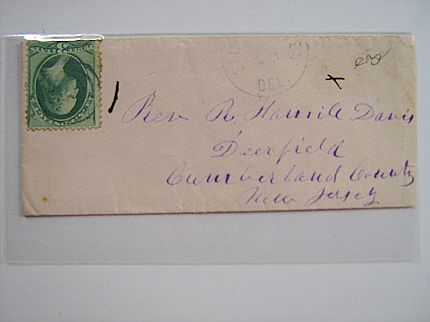 DEL
Rev R. Hamill Davis
Deerfield
Cumberland County
New Jersey